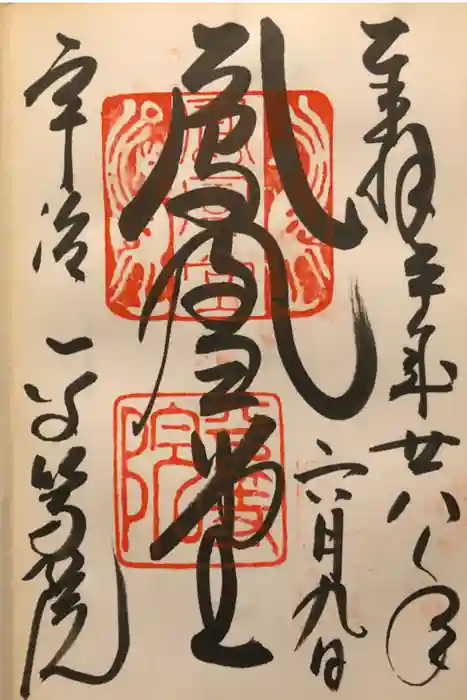 奉拝 平成廿八年
六月九日
鳳凰堂
鳳凰堂
宇治 平等院